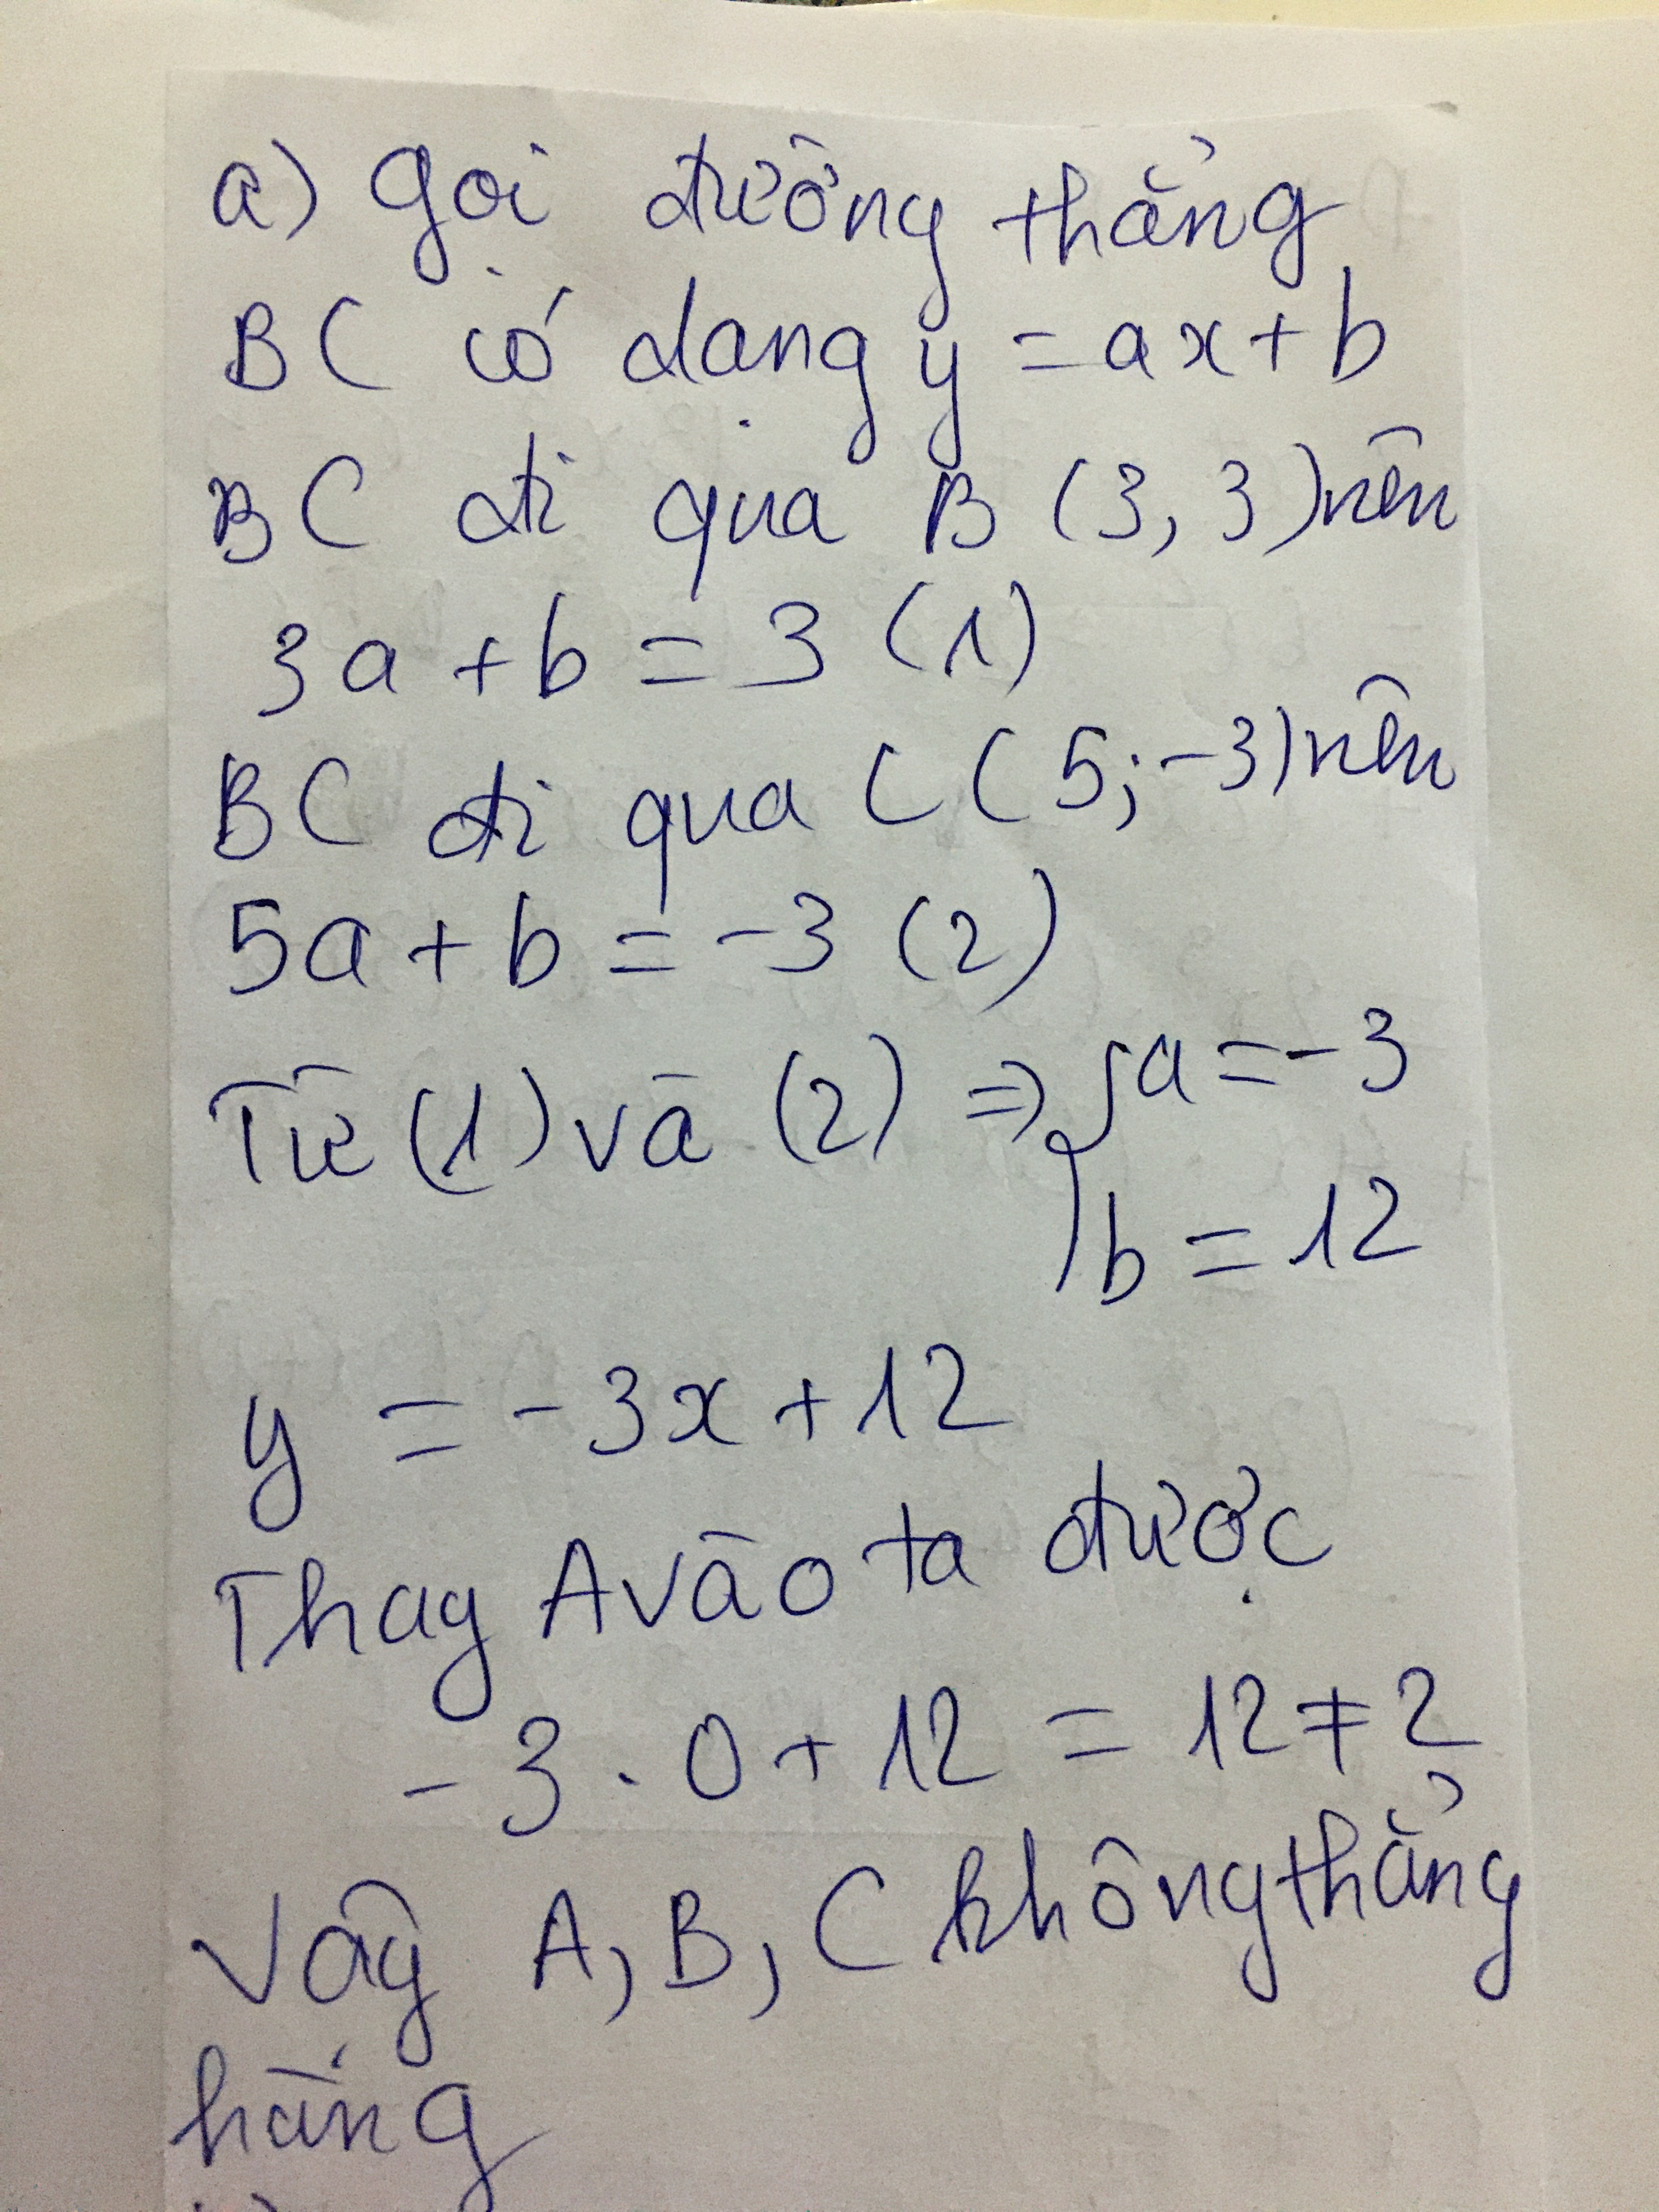 a) Gọi đường thẳng
BC có dạng y = ax + b
BC đi qua B (3, 3) nên
3a + b = 3 (1)
BC đi qua C (5; -3) nên
5a + b = -3 (2)
Từ (1) và (2) => { a = -3
b = 12
y = -3x + 12
Thay A vào ta được
-3 . 0 + 12 = 12 ≠ 2
Vậy A, B, C không thẳng
hàng